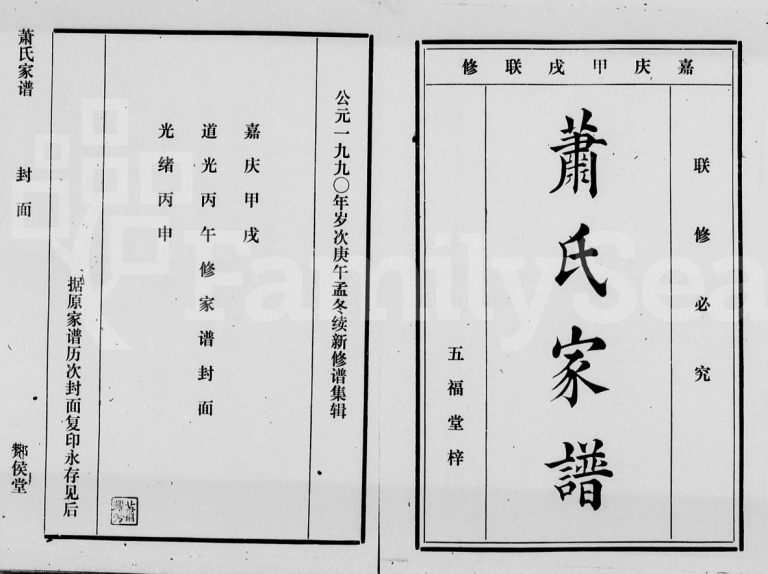 嘉庆甲戌联修
联修必究
萧氏家譜
五福堂梓
公元一九九〇年岁次庚午孟冬续新修谱集辑
嘉庆甲戌
道光丙午修家谱封面
光绪丙申
据原家谱历次封面复印永存见后
萧氏家谱
封面
酂侯堂
FamilySea